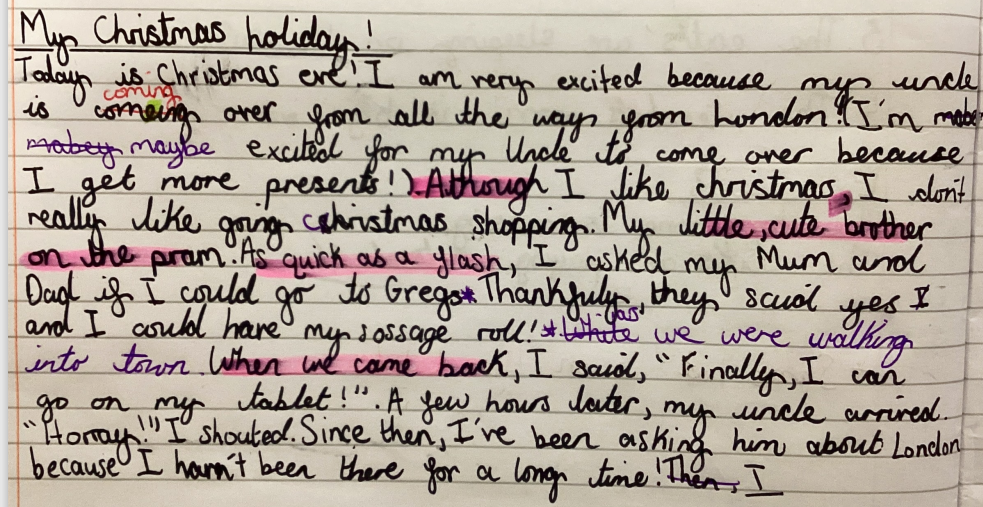 My Christmas holiday!
Today is Christmas eve! I am very excited because my uncle
coming
is comeing over from all the way from London! (I'm mabe
mabey maybe excited for my Uncle to come over because
I get more presents!). Although I like christmas, I don't
really like going christmas shopping. My little, cute brother
on the pram. As quick as a flash, I asked my Mum and
Dad if I could go to Gregs* Thankfuly, they said yes I
and I could have my sossage roll! * White as we were walking
into town. When we came back, I said, "Finally, I can
go on my tablet!". A few hours later, my uncle arrived.
"Horray!" I shouted. Since then, I've been asking him about London
because I havn't been there for a long time! Then, I